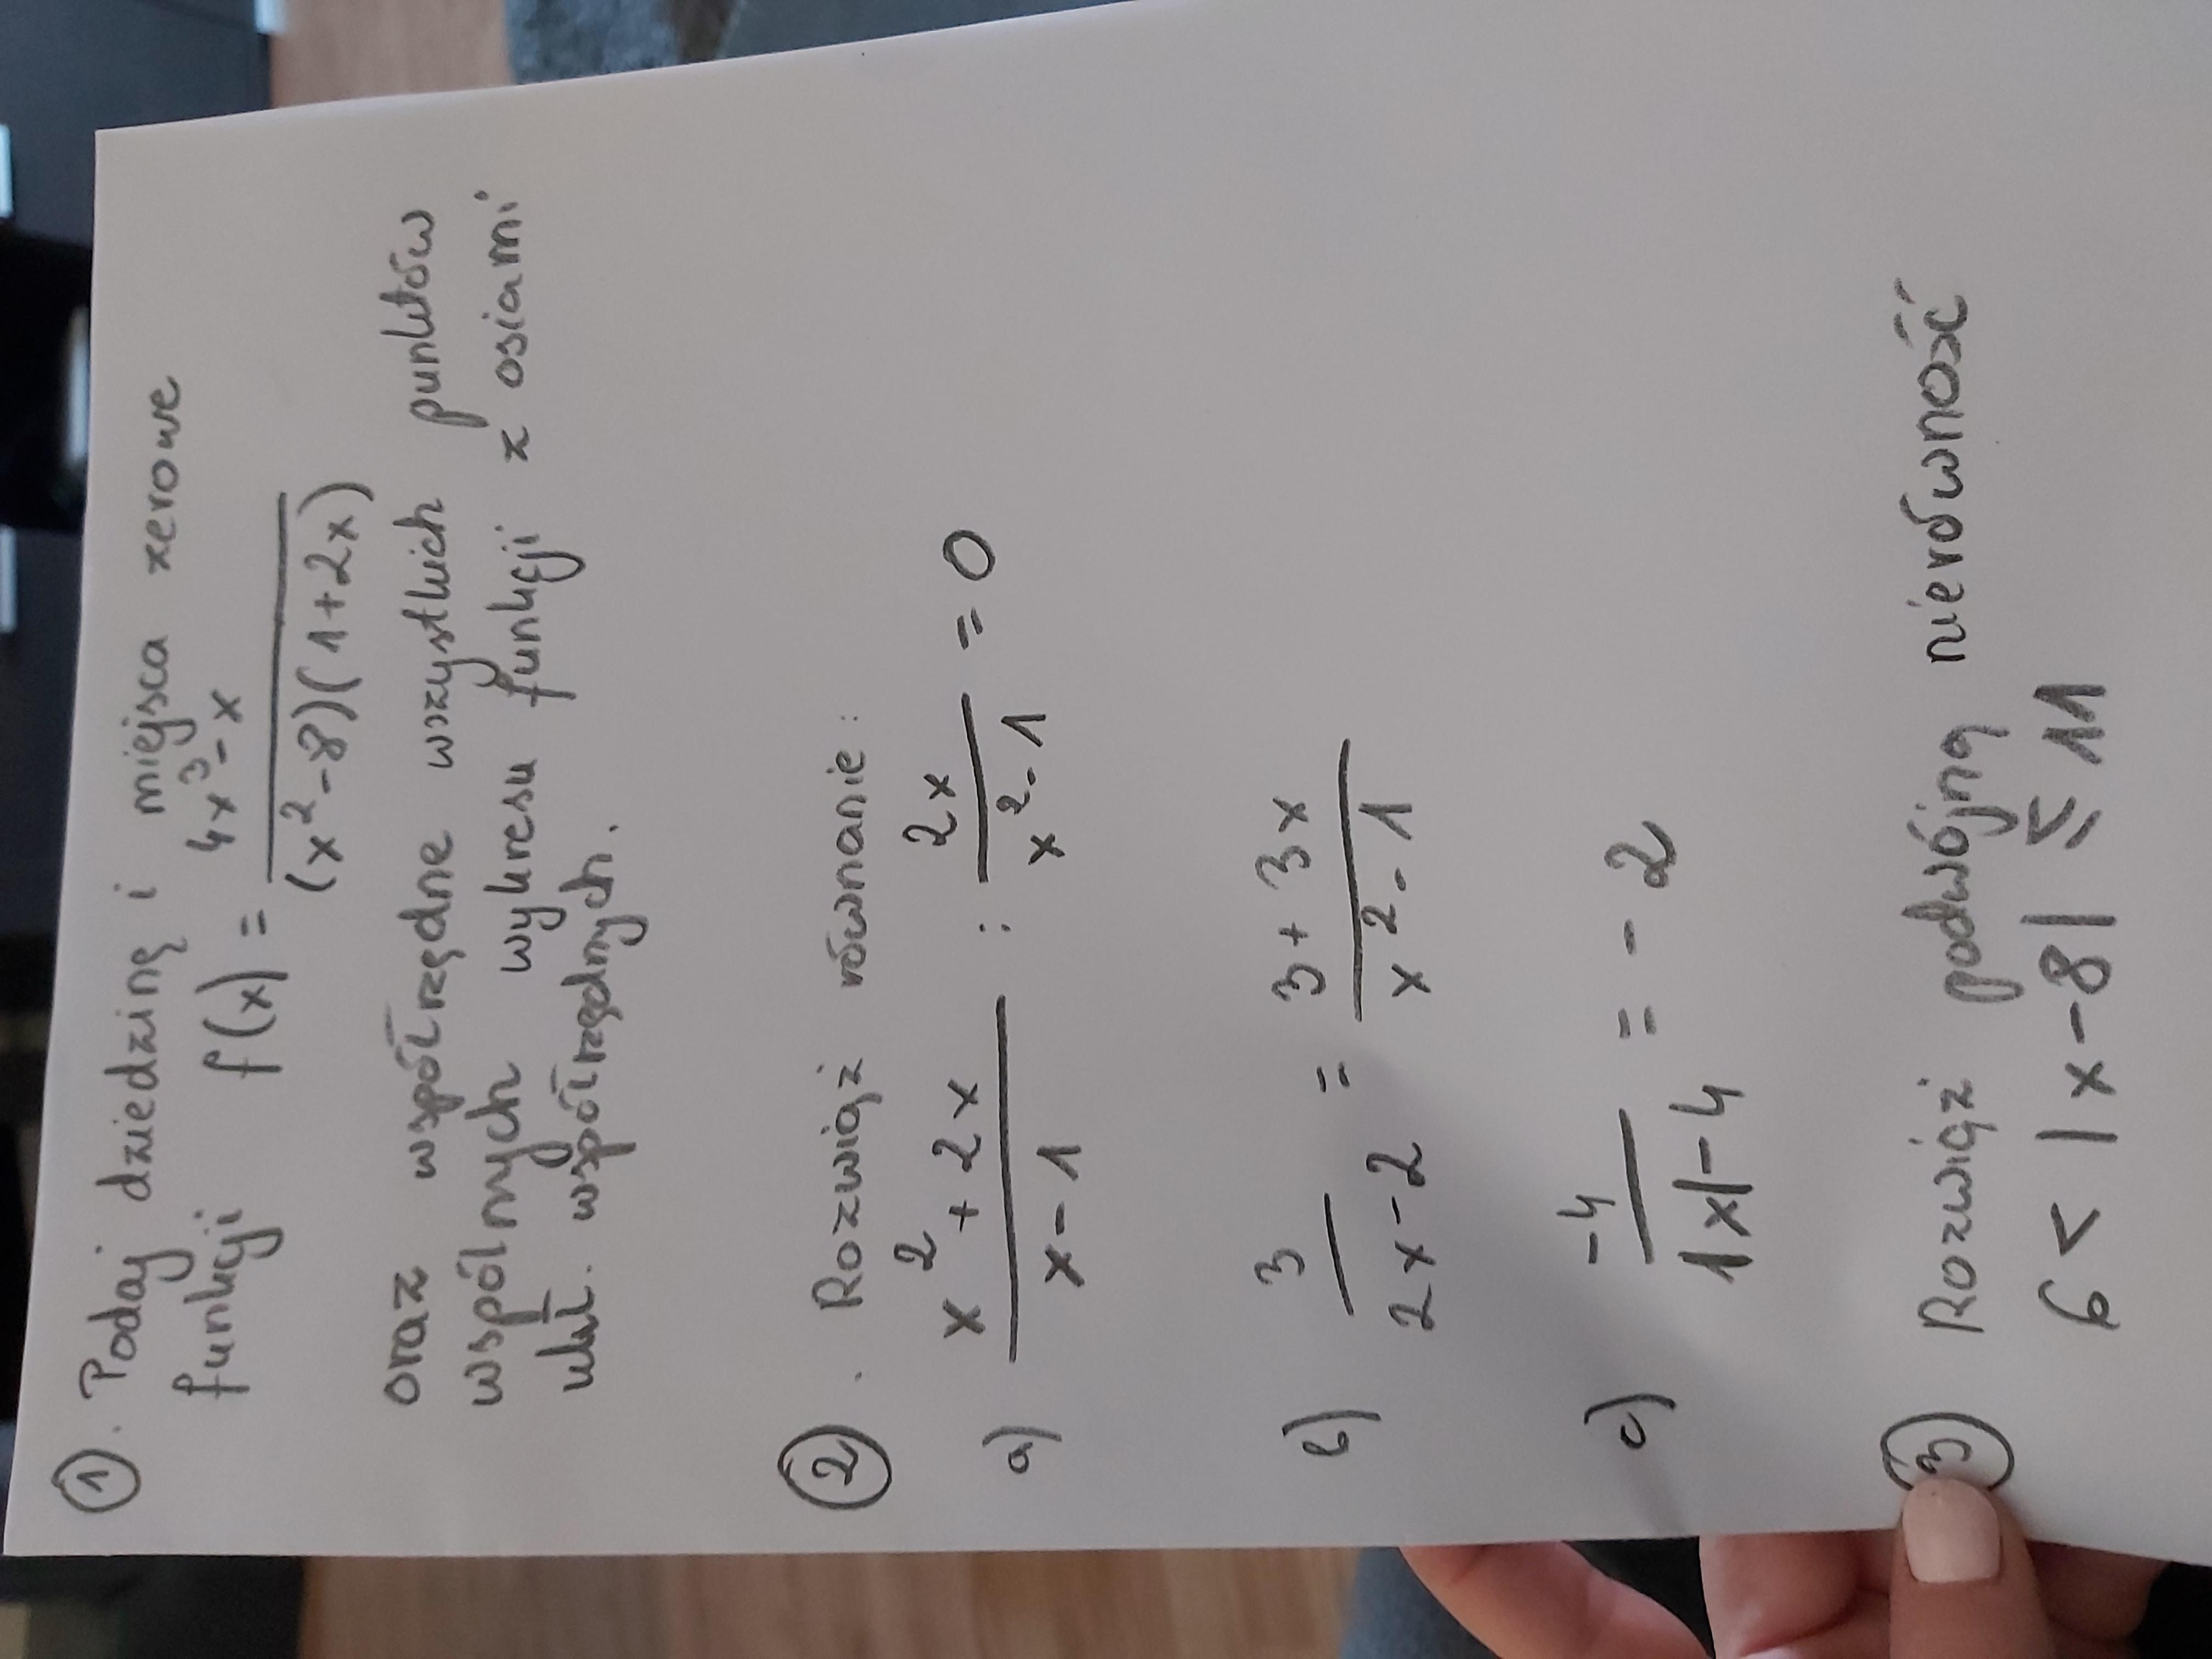 ①. Podaj dziedzinę i miejsca zerowe
funkcji f(x) = \frac{4x^3-x}{(x^2-8)(1+2x)}
oraz współrzędne wszystkich punktów
wspólnych wykresu funkcji z osiami
ukł. współrzędnych.
②. Rozwiąż równanie:
a) \frac{x^2+2x}{x-1} : \frac{2x}{x^2-1} = 0
b) \frac{3}{2x-2} = \frac{3+3x}{x^2-1}
c) \frac{-4}{|x|-4} = -2
③ Rozwiąż podwójną nierówność
6 < |x-8| ≤ 11